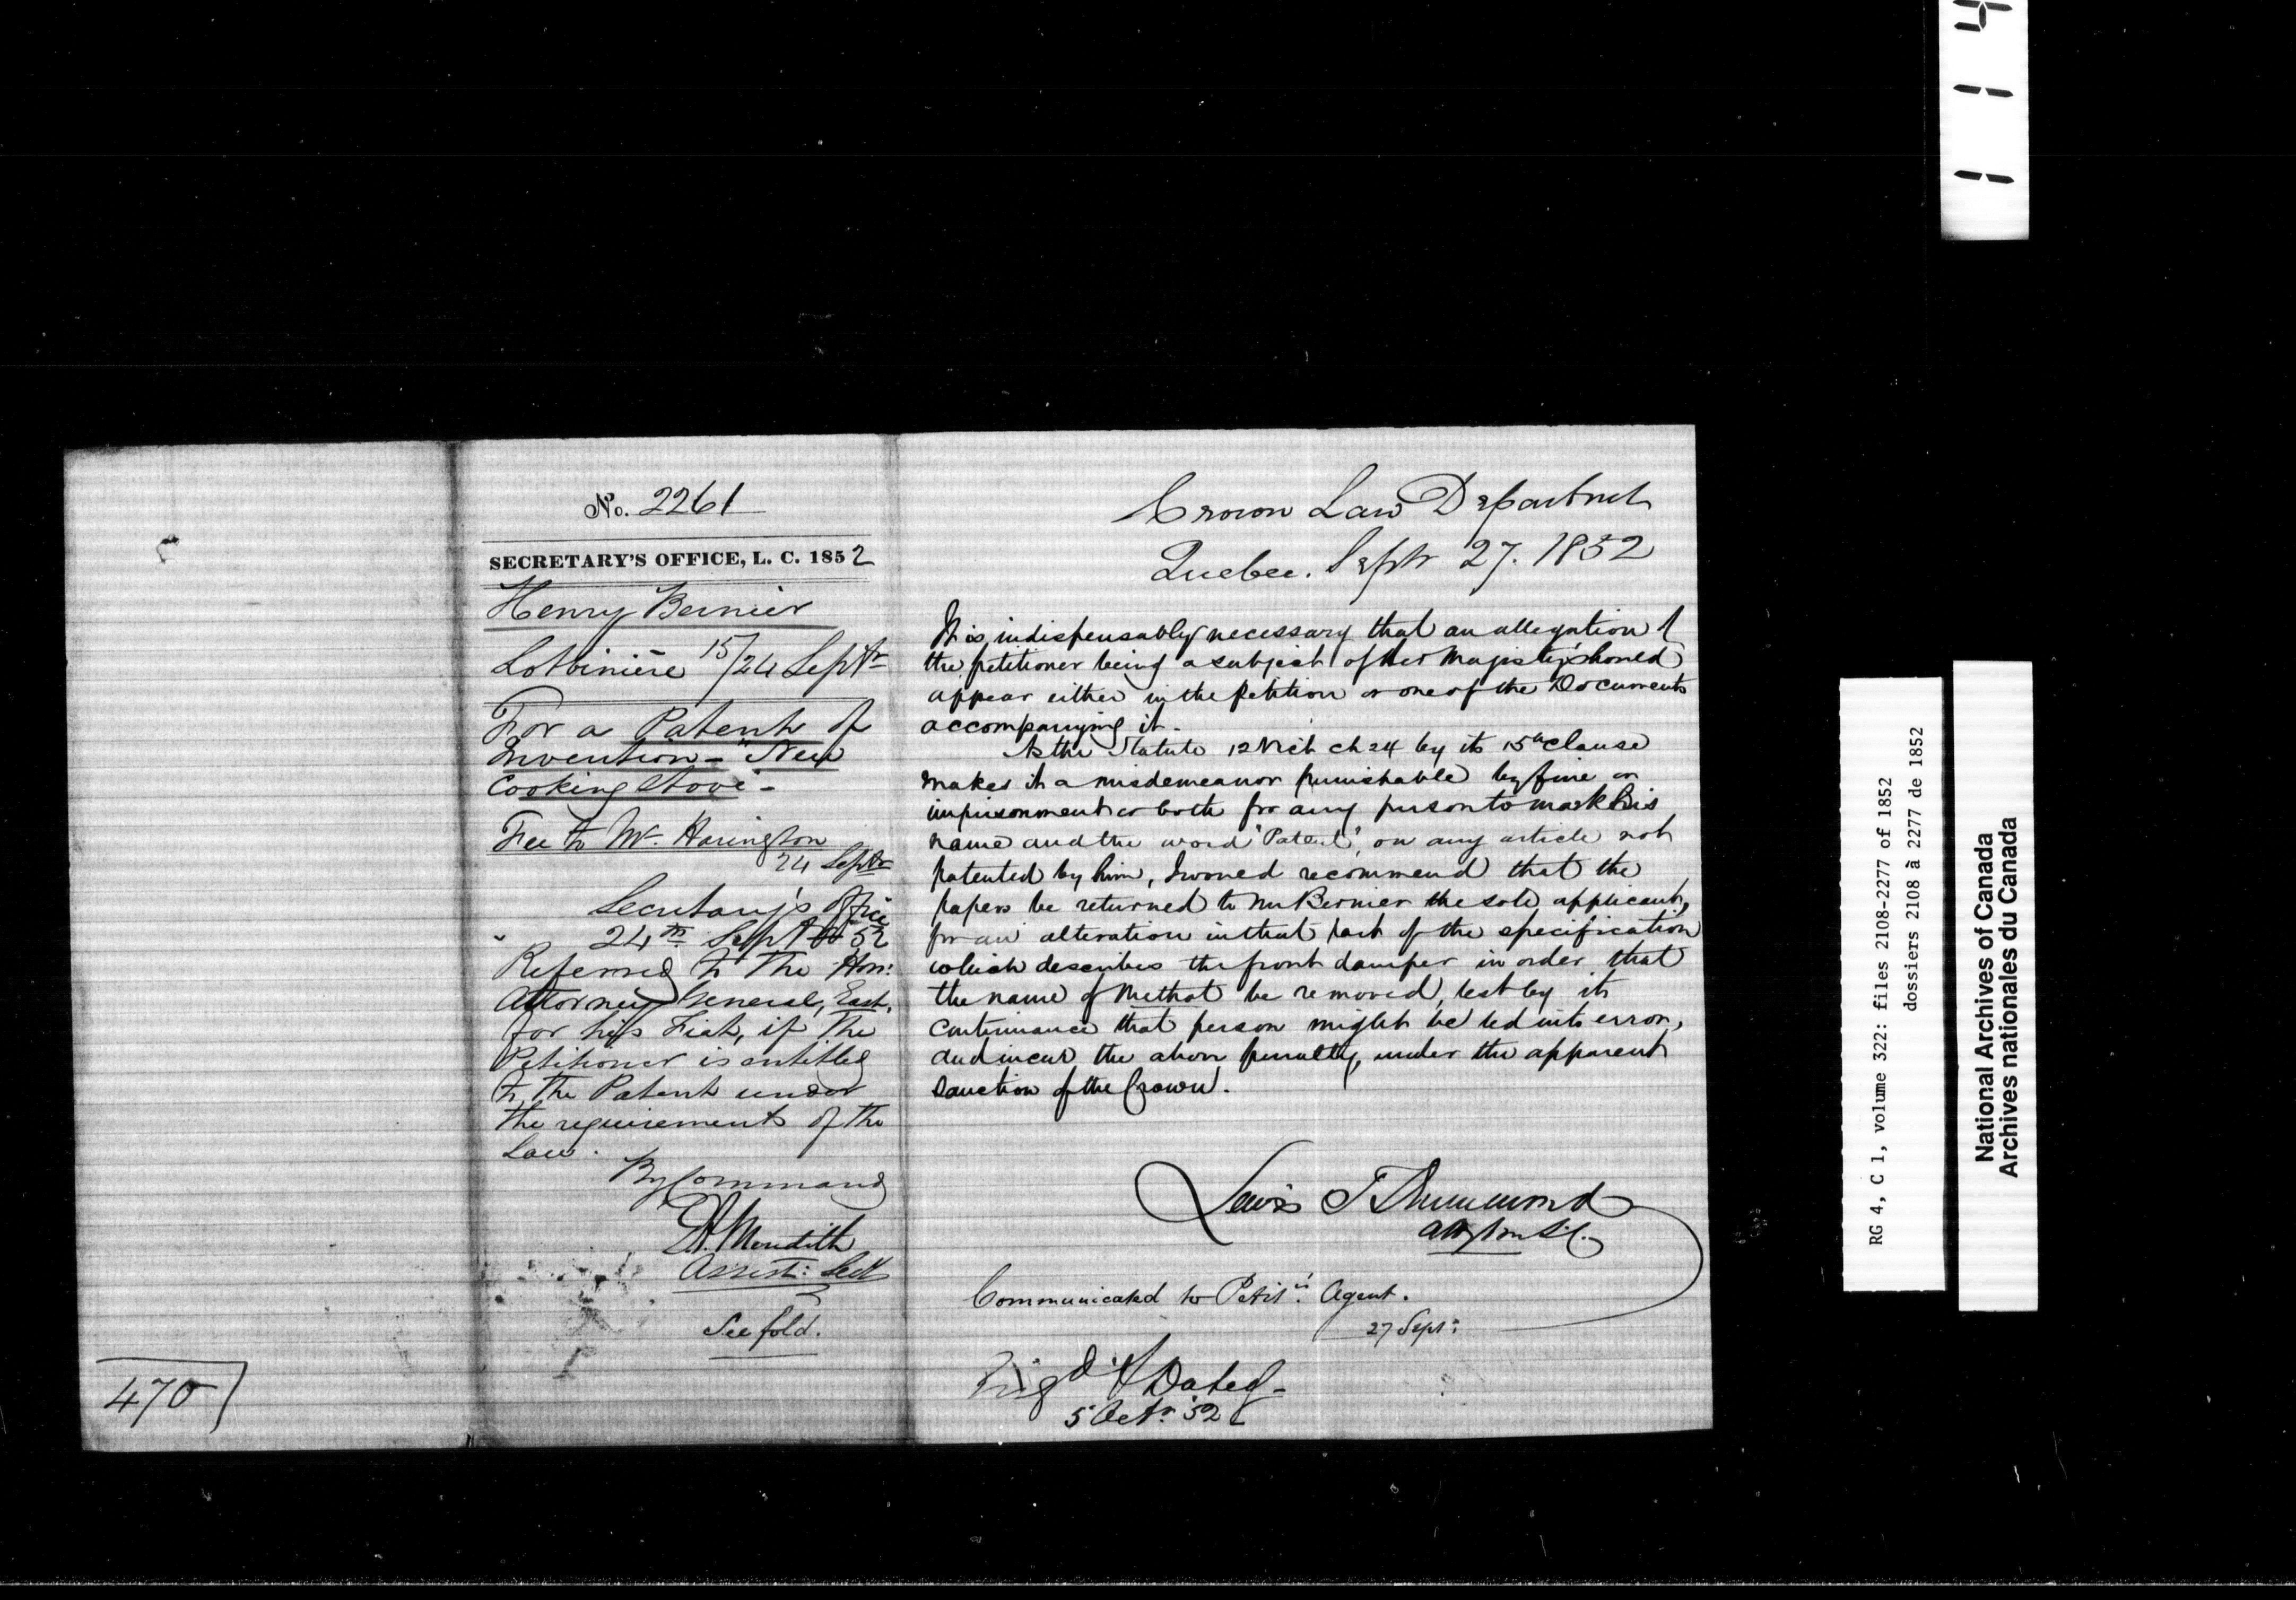 No. 2261
SECRETARY'S OFFICE, L. C. 1852
Henry Bernier
Lotbinière 15/24 Septr
For a Patent of
Invention - "New
Cooking Stove" -
Fee to Mr. Harington
24 Septr
Secretary's Office
24th Septr 52
Referred to The Hon:
Attorney General, East,
for his Fiat, if The
Petitioner is entitled
to the Patent under
the requirements of the
Law.
By Command
E A. Meredith
Assist: Secy
See fold.
470
Crown Law Department
Quebec. Septr 27. 1852
It is indispensably necessary that an allegation of
the petitioner being a subject of Her Majesty should
appear either in the petition or one of the Documents
accompanying it.
As the Statute 12 Vict ch 24 by its 15th clause
makes it a misdemeanor punishable by fine or
imprisonment or both for any person to mark his
name and the word "Patent", on any article not
patented by him, I would recommend that the
papers be returned to Mr Bernier the sole applicant,
for an alteration in that part of the specification
which describes the front damper in order that
the name of Methot be removed, lest by its
continuance that person might be led into error,
and incur the above penalty, under the apparent
sanction of the Crown.
Lewis T Drummond
Atty Gen L.C.
Communicated to Petitr's Agent.
27 Sept:
Sigd & Dated
5 Octr 52
114
RG 4, C 1, volume 322: files 2108-2277 of 1852
dossiers 2108 à 2277 de 1852
National Archives of Canada
Archives nationales du Canada